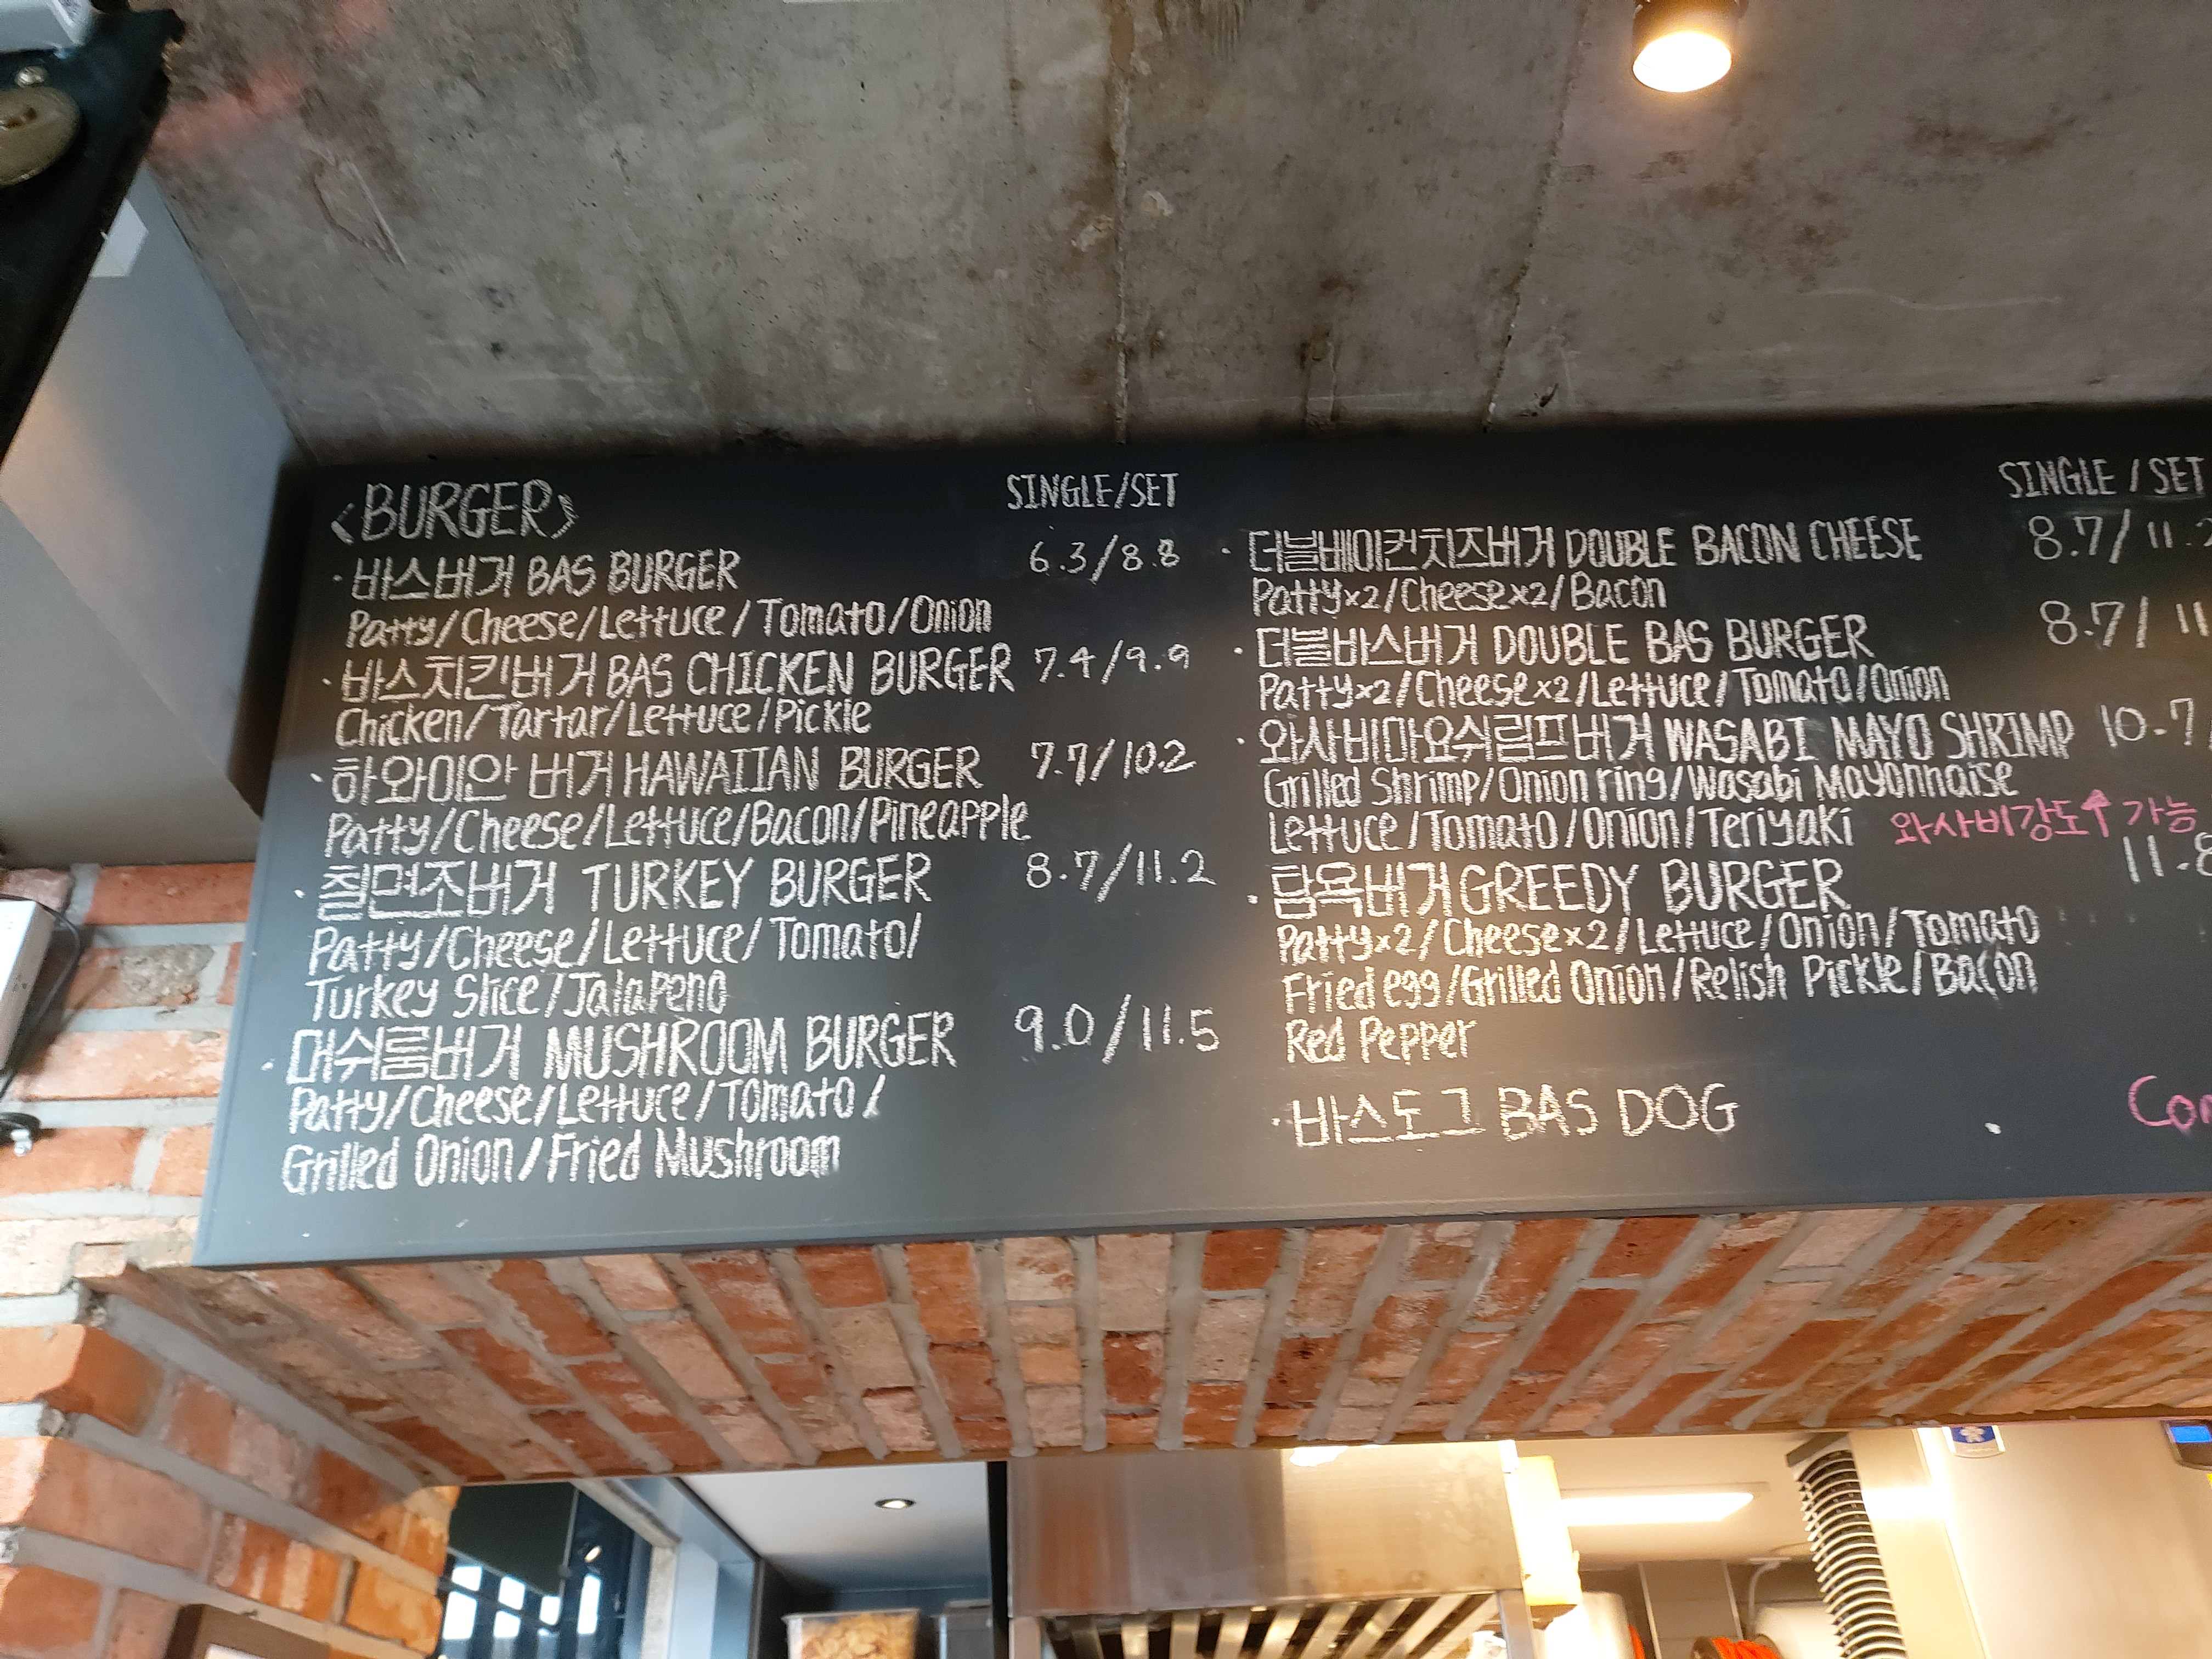 <BURGER> SINGLE/SET
· 바스버거 BAS BURGER 6.3/8.8
Patty/Cheese/Lettuce/Tomato/Onion
· 바스치킨버거 BAS CHICKEN BURGER 7.4/9.9
Chicken/Tartar/Lettuce/Pickle
· 하와이안 버거 HAWAIIAN BURGER 7.7/10.2
Patty/Cheese/Lettuce/Bacon/Pineapple
· 칠면조버거 TURKEY BURGER 8.7/11.2
Patty/Cheese/Lettuce/Tomato/
Turkey Slice/Jalapeno
· 머쉬룸버거 MUSHROOM BURGER 9.0/11.5
Patty/Cheese/Lettuce/Tomato/
Grilled Onion/Fried Mushroom
SINGLE / SET
· 더블베이컨치즈버거 DOUBLE BACON CHEESE 8.7/11.2
Patty×2/Cheese×2/Bacon
· 더블바스버거 DOUBLE BAS BURGER 8.7/11
Patty×2/Cheese×2/Lettuce/Tomato/Onion
· 와사비마요쉬림프버거 WASABI MAYO SHRIMP 10.7/
Grilled Shrimp/Onion ring/Wasabi Mayonnaise
Lettuce/Tomato/Onion/Teriyaki 와사비강도↑ 가능
· 탐욕버거 GREEDY BURGER 11.8
Patty×2/Cheese×2/Lettuce/Onion/Tomato
Fried egg/Grilled Onion/Relish Pickle/Bacon
Red Pepper
· 바스도그 BAS DOG